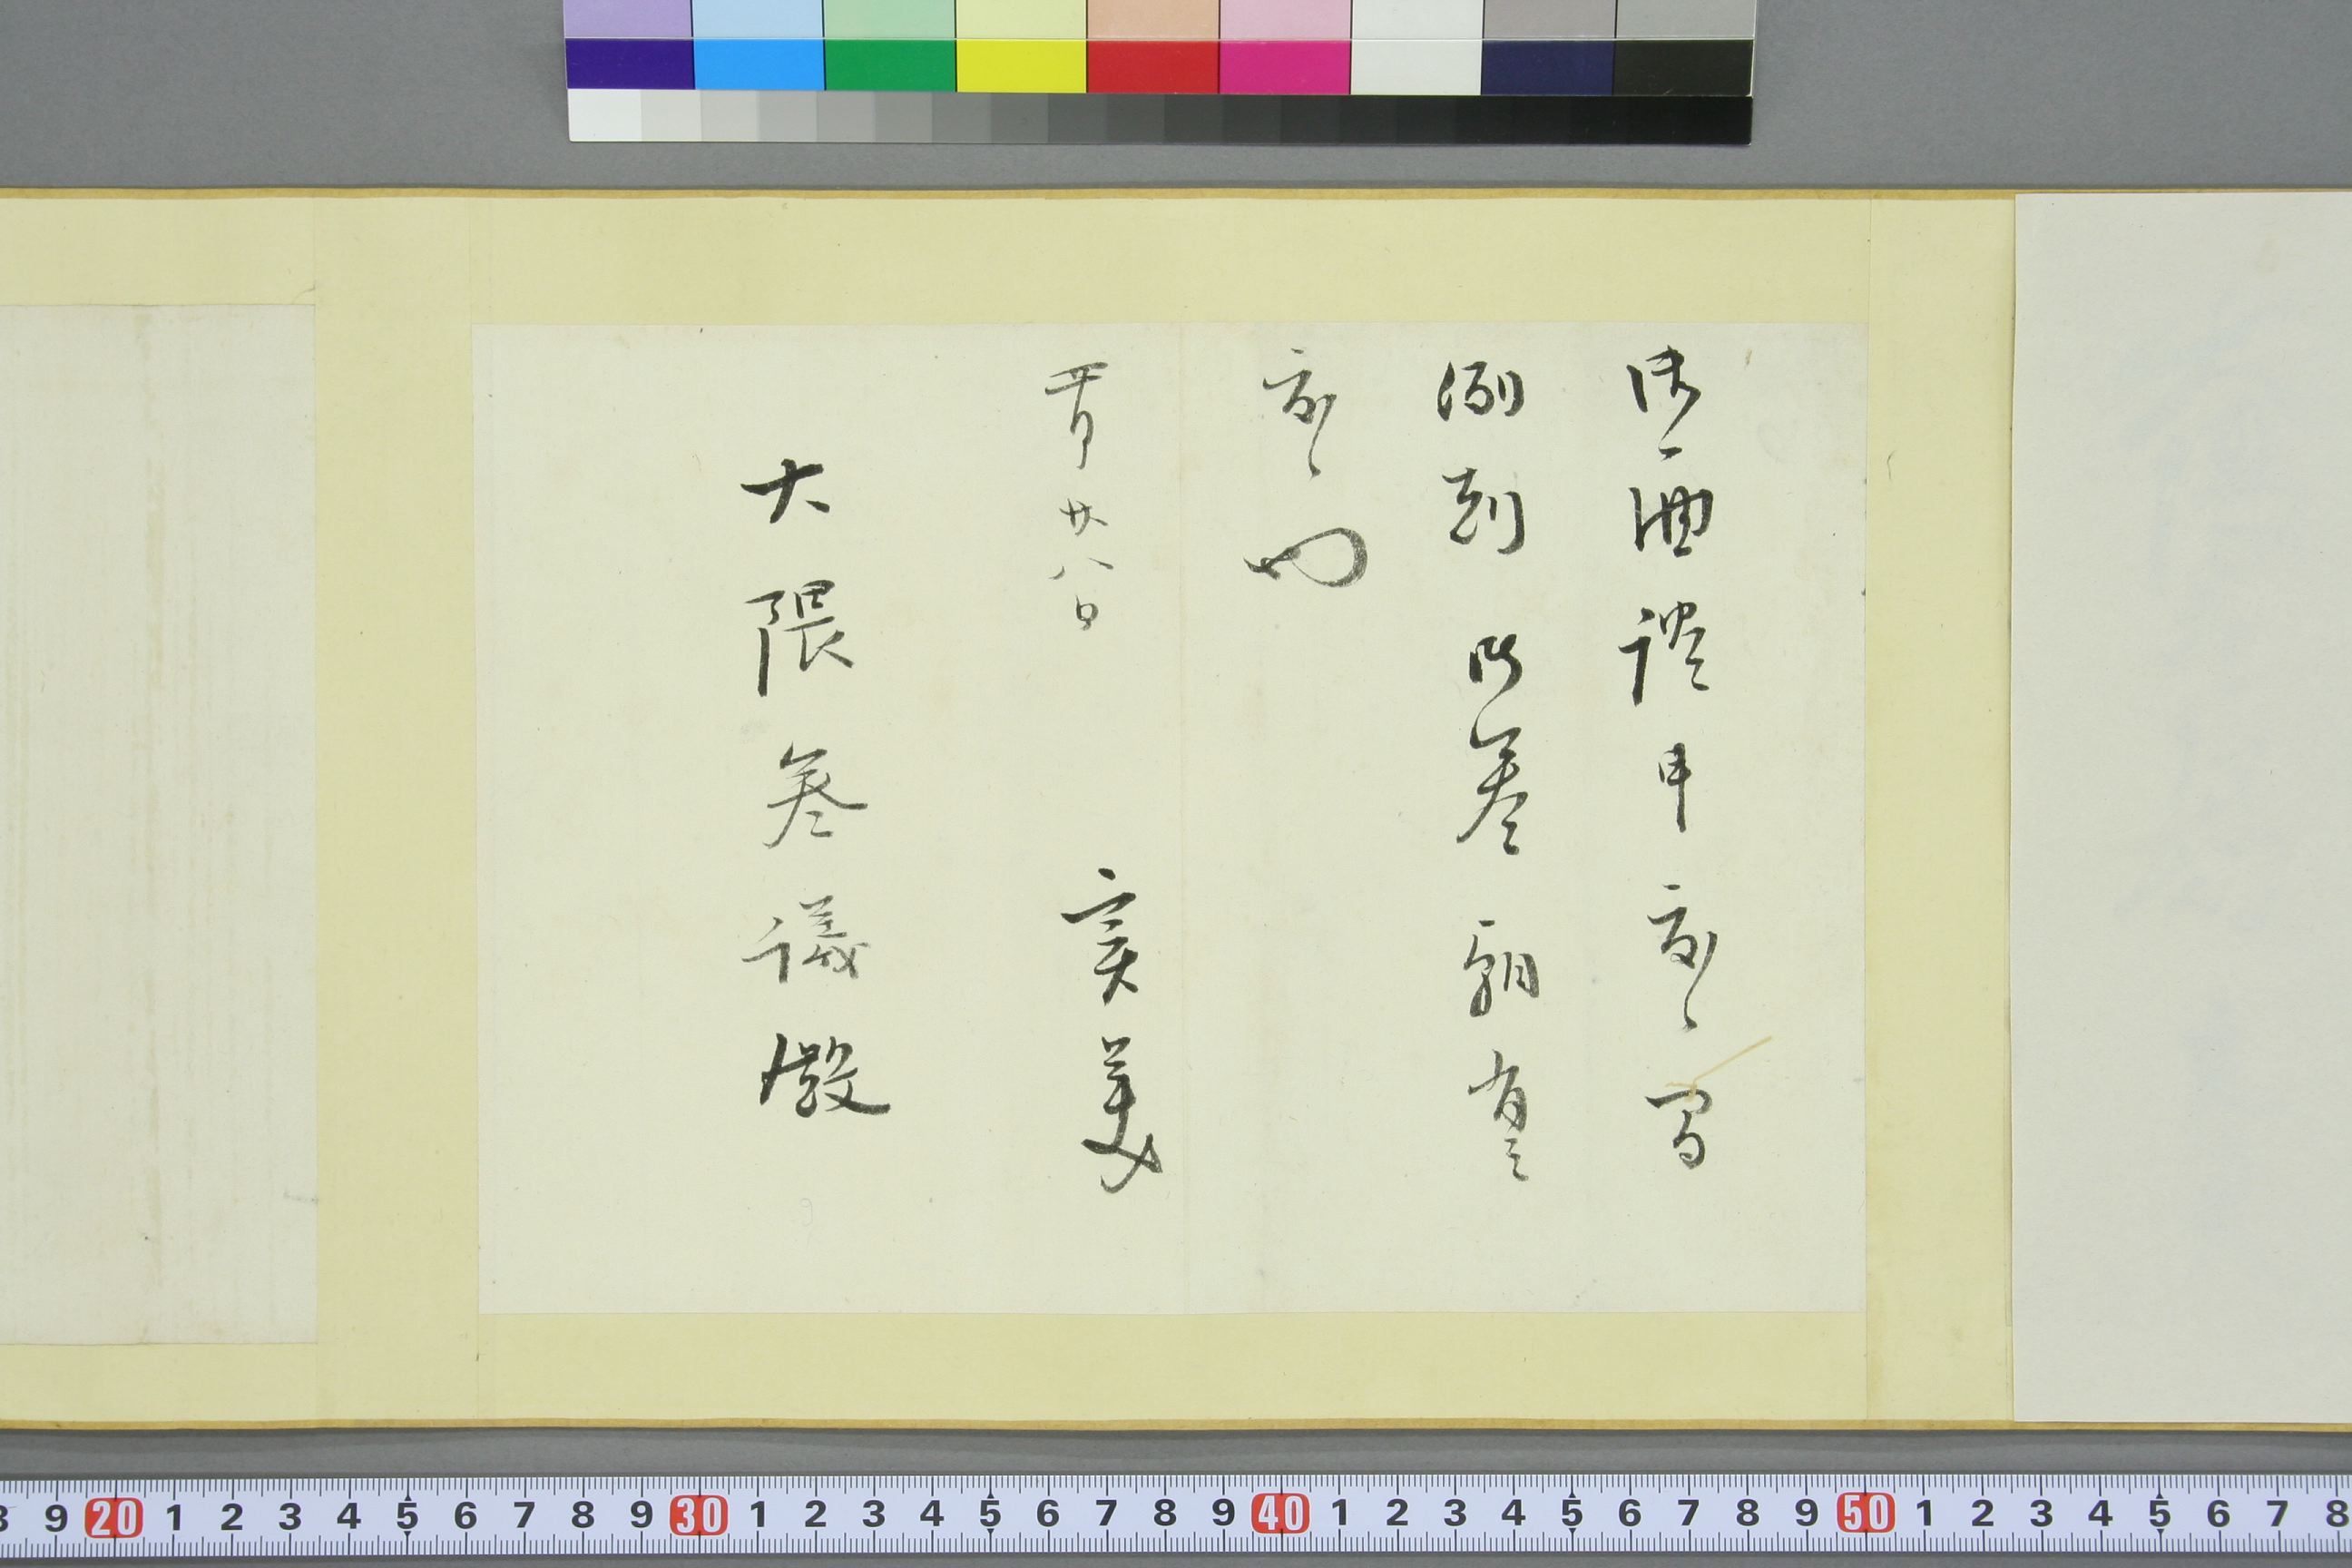 御面談申度候間
例刻御参朝有之
度候也
廿八日 實美
大隈参議殿
8 9 20 1 2 3 4 5 6 7 8 9 30 1 2 3 4 5 6 7 8 9 40 1 2 3 4 5 6 7 8 9 50 1 2 3 4 5 6 7 8